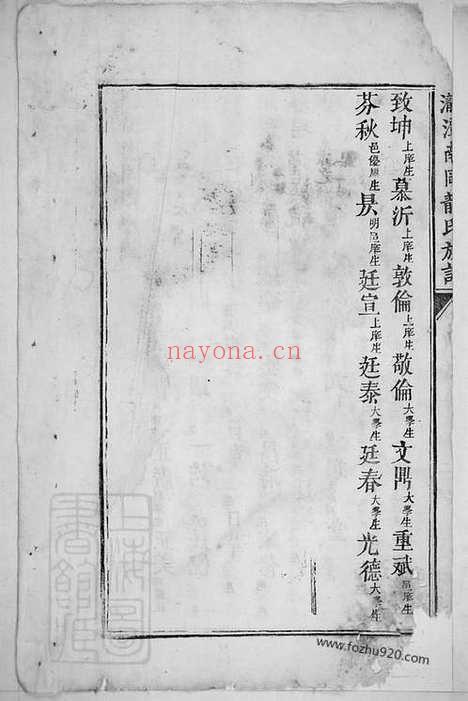 致坤上庠生慕沂上庠生敦倫上庠生敬倫大學生文鼎大學生重斌邑庠生
芬秋邑優廩生昃明邑庠生廷宣上庠生廷泰大學生廷春大學生光德大學生
南岡龍氏族譜
nayona.cn
上海圖書館藏
www.fozhu920.com